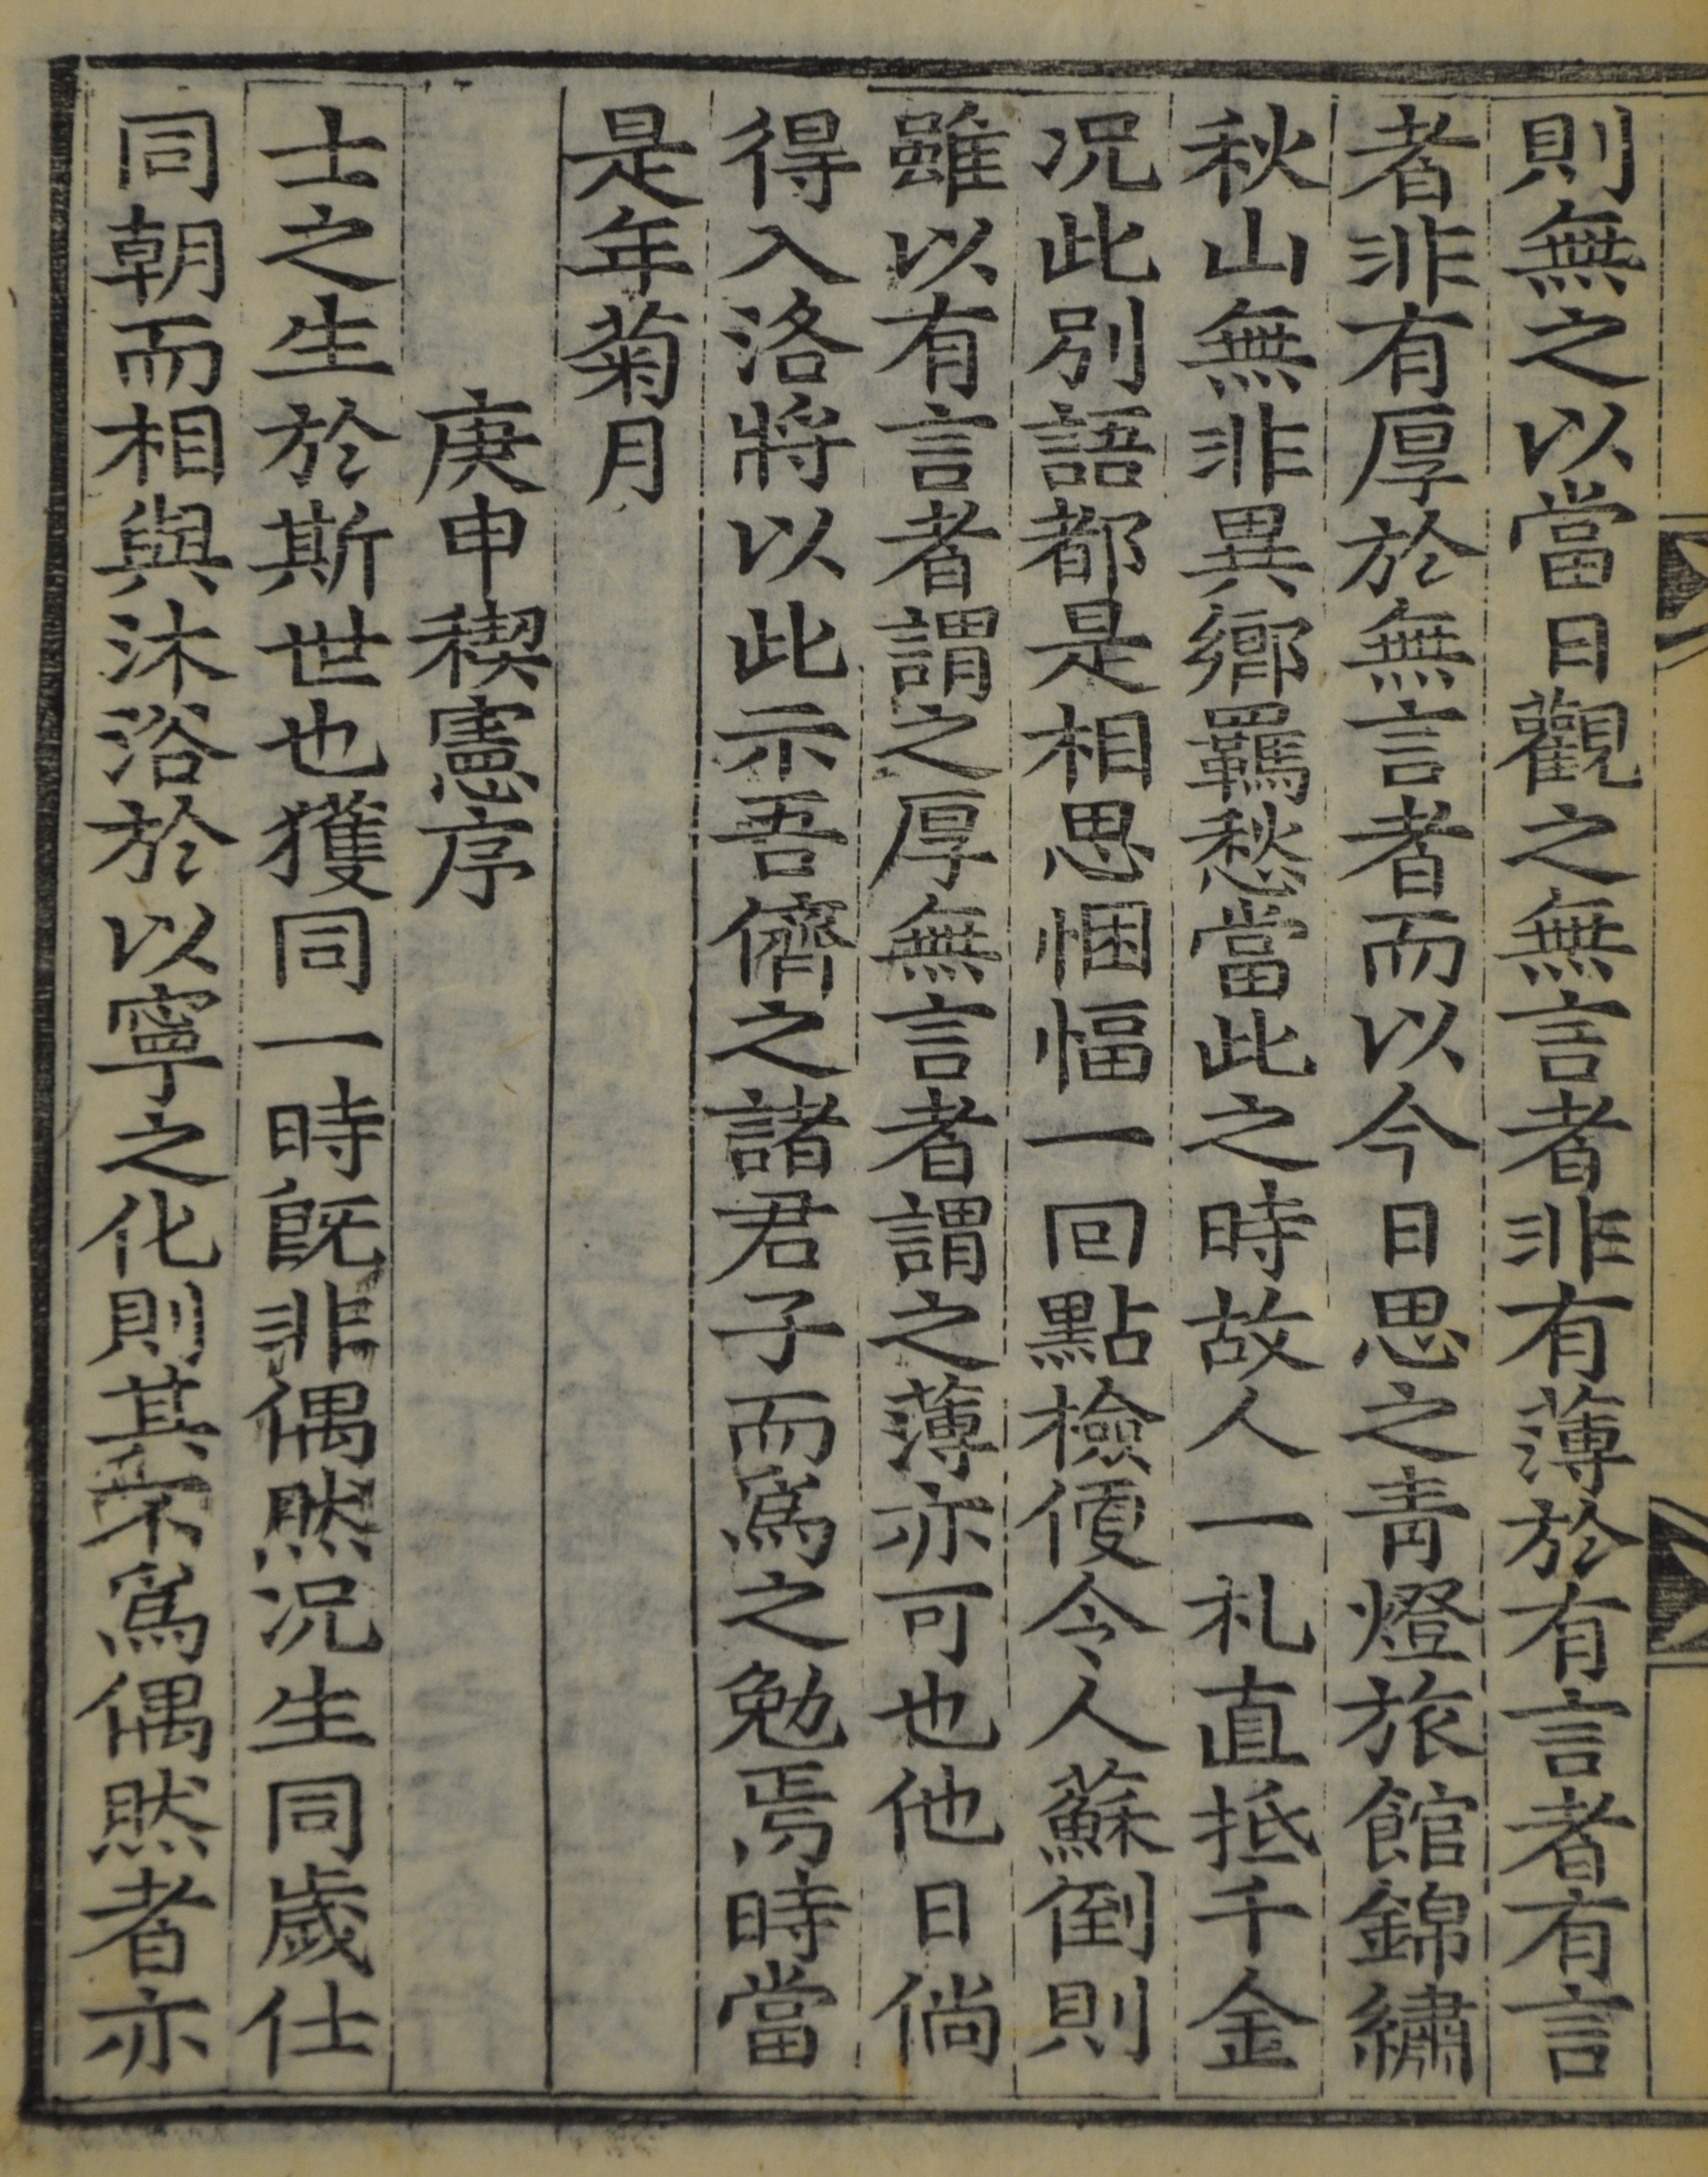 則無之以當日觀之無言者非有薄於有言者有言
者非有厚於無言者而以今日思之靑燈旅館錦繡
秋山無非異鄕羈愁當此之時故人一札直抵千金
况此別語都是相思悃愊一回點檢傻令人蘇倒則
雖以有言者謂之厚無言者謂之薄亦可也他日倘
得入洛將以此示吾儕之諸君子而爲之勉焉時當
是年菊月
庚申稧憲序
士之生於斯世也獲同一時旣非偶然况生同歲仕
同朝而相與沐浴於以寧之化則其不爲偶然者亦